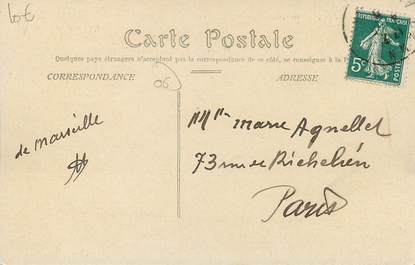 10€
Carte Postale
Quelques pays étrangers n'acceptant pas la correspondance de ce côté, se renseigner à la
CORRESPONDANCE
ADRESSE
REPUBLIQUE FRANCAISE
5c
POSTES
06
de Marseille
Marie Agnellet
73 rue Richelieu
Paris